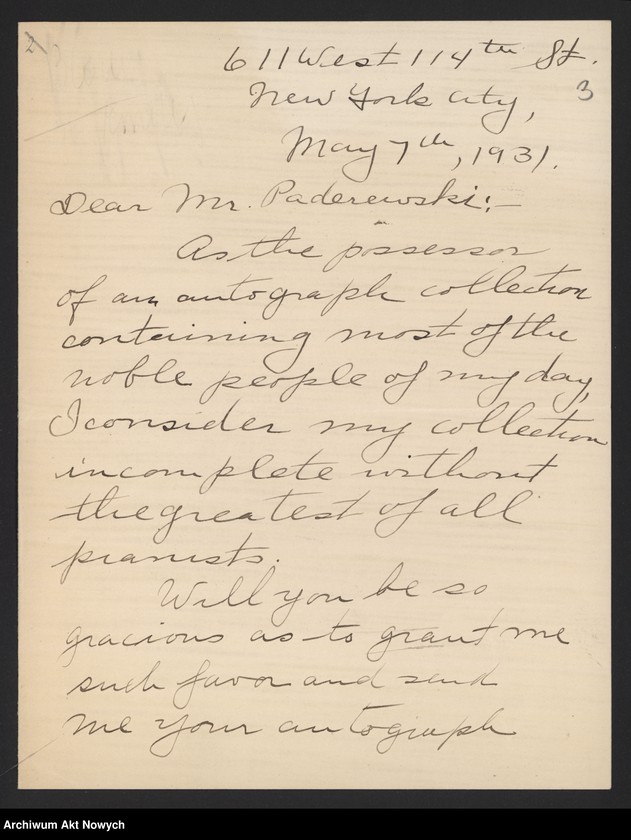 2
611 West 114th St.
3
New York City,
May 7th, 1931.
Dear Mr. Paderewski:—
As the possessor
of an autograph collection
containing most of the
noble people of my day,
I consider my collection
incomplete without
the greatest of all
pianists.
Will you be so
gracious as to grant me
such favor and send
me your autograph
Archiwum Akt Nowych